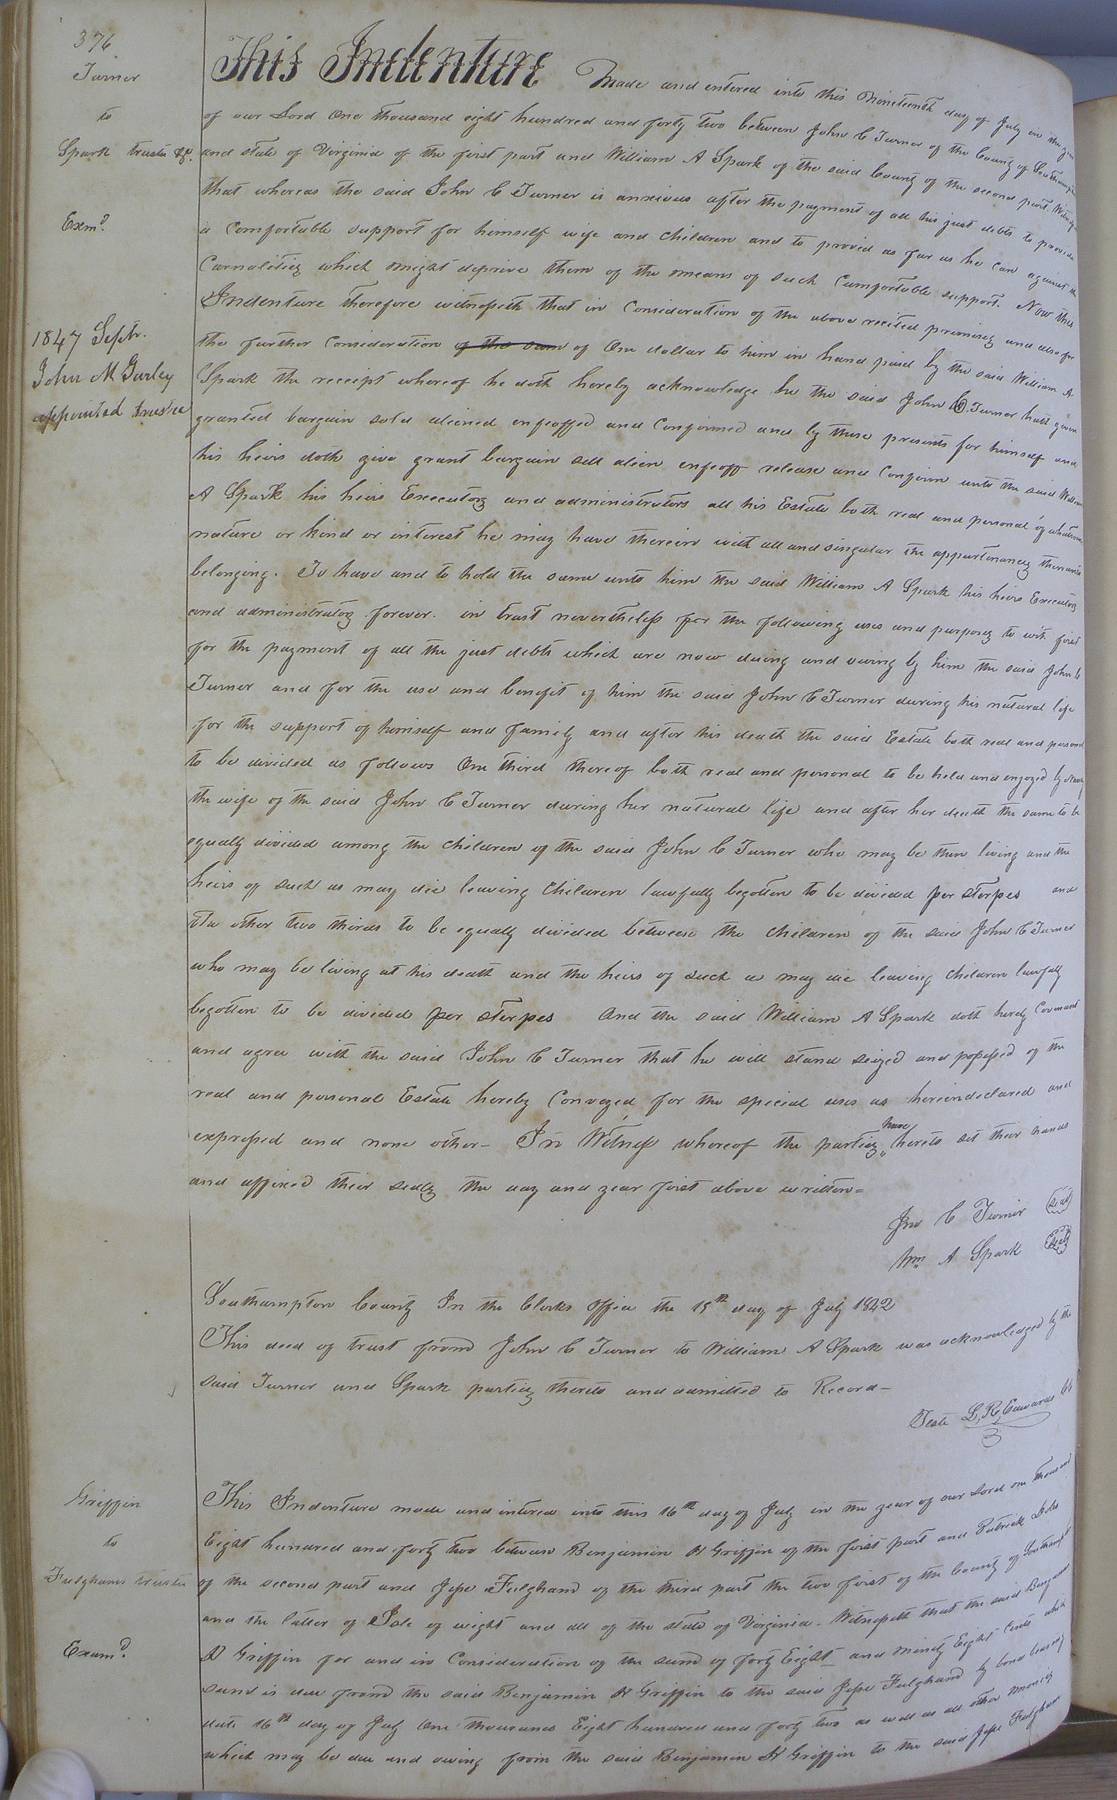 376
Turner
to
Spark trustee &c.
Exmd.
1847 Septr.
John M Gurley
appointed trustee
This Indenture Made and entered into this Nineteenth day of July in the year
of our Lord One thousand eight hundred and forty two between John C Turner of the County of Southampton
and state of Virginia of the first part and William A Spark of the said County of the second part. Witnesseth
that whereas the said John C Turner is anxious after the payment of all his just debts to provide
a comfortable support for himself wife and children and to provid as far as he can against the
which might deprive them of the means of such Comfortable support. Now this
Indenture therefore witnesseth that in Consideration of the above recited premises and also for
the further Consideration of the sum of One dollar to him in hand paid by the said William A
Spark the receipt whereof he doth hereby acknowledge he the said John C Turner hath given
granted bargain sold aliened enfeoffed and Confirmed and by these presents for himself and
his heirs doth give grant bargain sell alien enfeoff release and Confirm unto the said William
A Spark his heirs Executors and administrators all his Estate both real and personal of whatever
nature or kind or interest he may have therein with all and singular the appurtenances thereunto
belonging. To have and to hold the same unto him the said William A Spark his heirs Executors
and administrators forever. in trust nevertheless for the following uses and purposes to wit first
for the payment of all the just debts which are now dueing and owing by him the said John C
Turner and for the use and benefit of him the said John C Turner during his natural life
for the support of himself and family and after his death the said Estate both real and personal
to be divided as follows One third thereof both real and personal to be held and enjoyed by
the wife of the said John C Turner during her natural life and after her death the same to be
equally divided among the children of the said John C Turner who may be then living and the
heirs of such as may die leaving Children lawfully begotten to be divided per sterpes and
the other two thirds to be equally divided between the children of the said John C Turner
who may be living at his death and the heirs of such as may die leaving children lawfully
begotten to be divided per sterpes And the said William A Spark doth hereby Covenant
and agree with the said John C Turner that he will stand seized and possessed of the
real and personal Estate hereby Conveyed for the special uses as hereindeclared and
expressed and none other— In Witness whereof the parties have hereto set their hands
and affixed their seals the day and year first above written—
Jno C Turner (Seal)
Wm A Spark (Seal)
Southampton County In the Clerks Office the 19th day of July 1842
This deed of trust from John C Turner to William A Spark was acknowledged by the
said Turner and Spark parties thereto and admitted to Record—
Teste L, R, Edwards Ck
Griffin
to
Fulghams trustee
Examd.
This Indenture made and intered into this 16th day of July in the year of our Lord one thousand
Eight hundred and forty two between Benjamin H Griffin of the first part and Patrick
of the second part and Jesse Fulgham of the third part the two first of the County of Southampton
and the latter of Isle of wight and all of the state of Virginia. Witnesseth that the said Benjamin
H Griffin for and in Consideration of the sum of forty Eight and ninety Eight Cents which
sum is due from the said Benjamin H Griffin to the said Jesse Fulgham by bond bearing
date 16th day of July One thousand Eight hundred and forty two as well as all other monies
which may be due and owing from the said Benjamin H Griffin to the said Jesse Fulgham